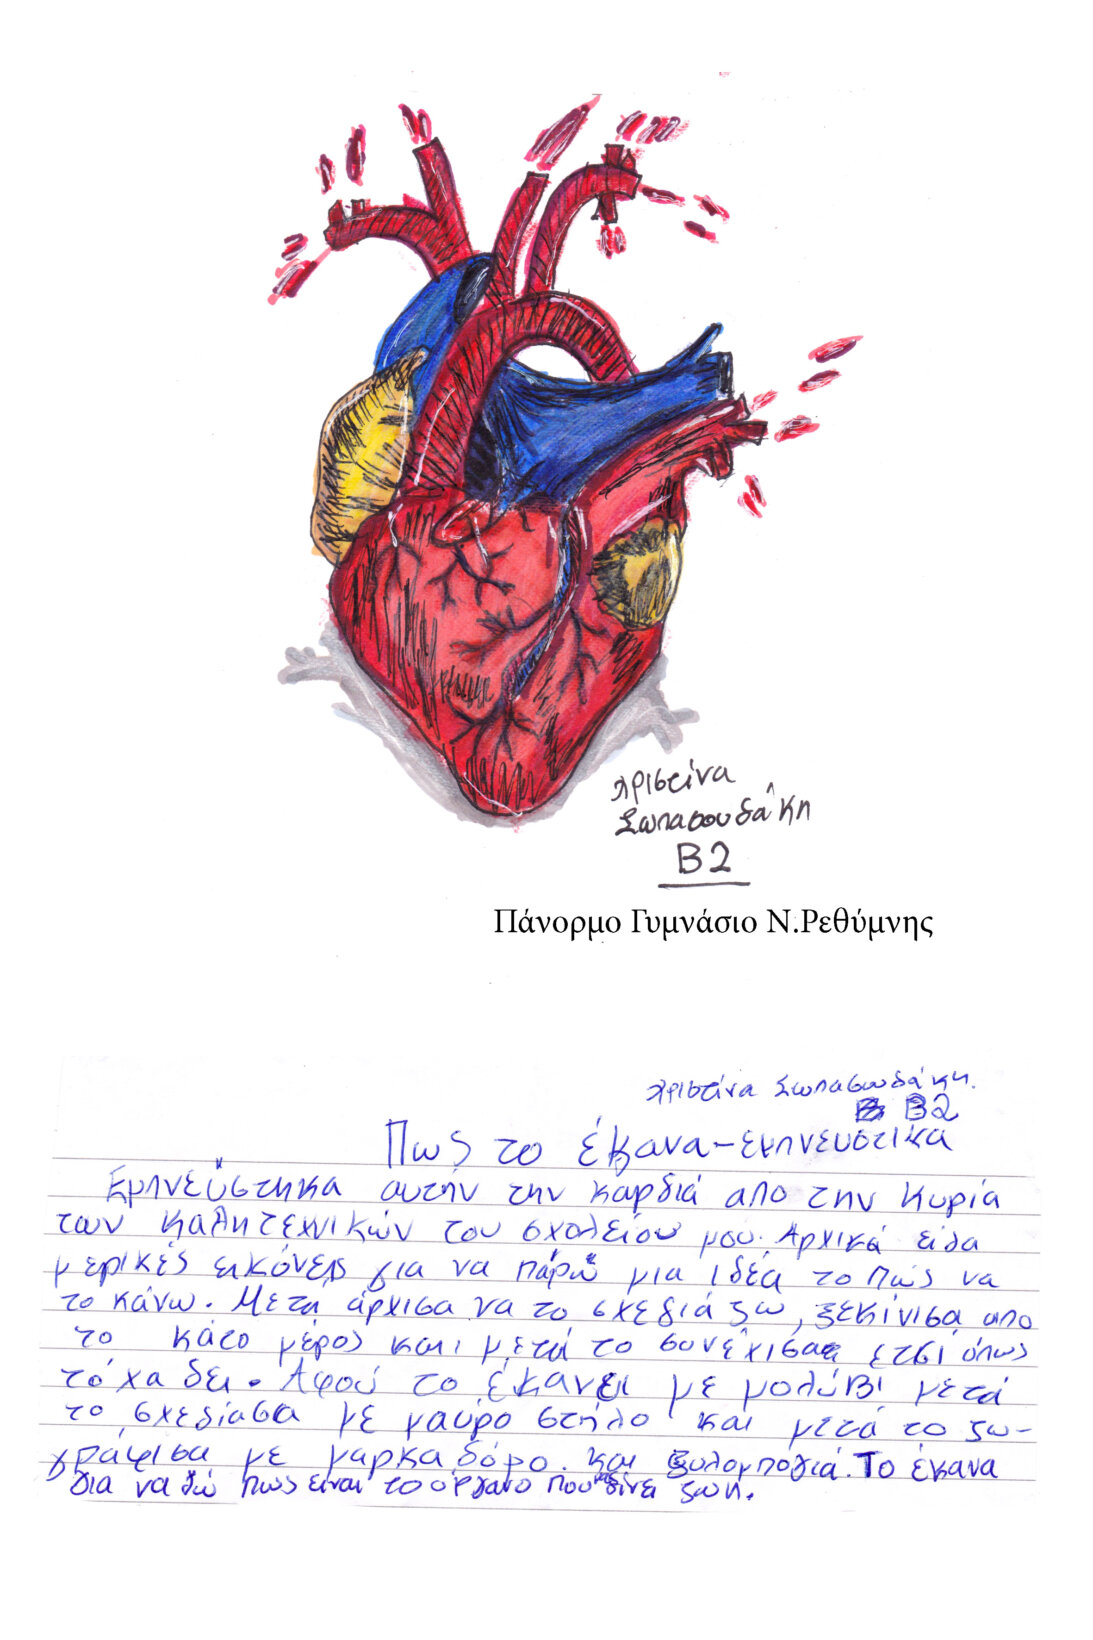 Χριστίνα
Σωπασουδάκη
Β2
Πάνορμο Γυμνάσιο Ν.Ρεθύμνης
Χριστίνα Σωπασουδάκη.
Β2
Πως το έκανα-εμπνευστικα
Εμπνεύστηκα αυτήν την καρδιά απο την κυρία
των καλητεχνικών του σχολείου μου. Αρχικά είδα
μερικές εικόνες για να πάρω μια ιδέα το πώς να
το κάνω. Μετά άρχισα να το σχεδιάζω, ξεκίνισα απο
το κάτο μέρος και μετά το συνέχισα έτσι όπως
τόχα δει. Αφού το έκανα με μολύβι μετά
το σχεδίασα με μαύρο στηλο και μετά το ζω-
γράφισα με μαρκαδόρο. και ξυλομπογιά. Το έκανα
για να δω πως είναι το όργανο που μας δίνει ζωή.